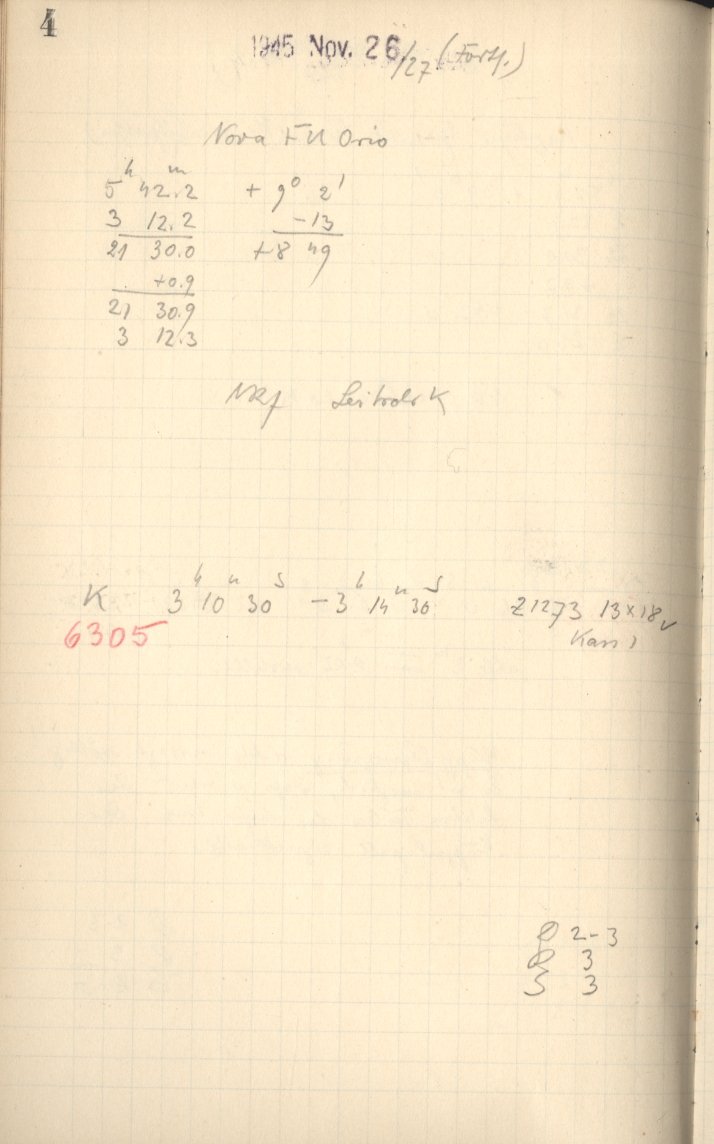 4
1945 Nov. 26/27 (Forts.)
Nova FU Orio
5ʰ 42.2ᵐ + 9° 2'
3 12.2 -13
21 30.0 +8 49
+0.9
21 30.9
3 12.3
Leitrohr K
K 3ʰ 10ᵐ 30ˢ - 3ʰ 14ᵐ 30ˢ Z1273 13x18 ✓
6305 Kass 1
2-3
3
S 3